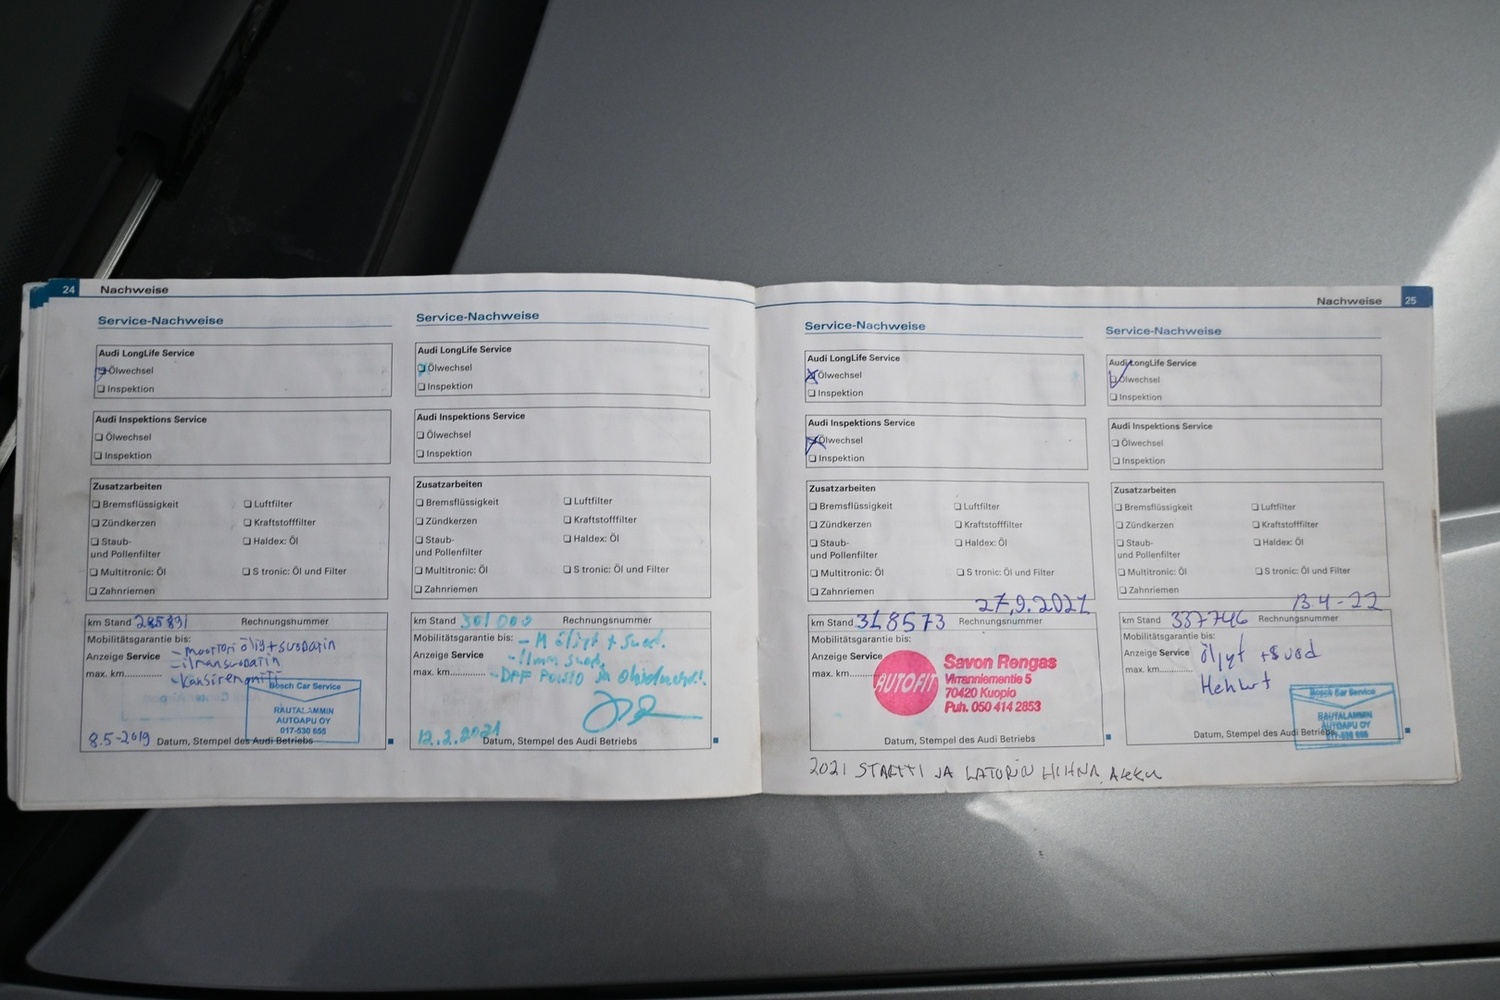 24 Nachweise
Service-Nachweise
Audi LongLife Service
Ölwechsel
Inspektion
Audi Inspektions Service
Ölwechsel
Inspektion
Zusatzarbeiten
Bremsflüssigkeit Luftfilter
Zündkerzen Kraftstofffilter
Staub- Haldex: Öl
und Pollenfilter
Multitronic: Öl S tronic: Öl und Filter
Zahnriemen
km Stand 285891 Rechnungsnummer
Mobilitätsgarantie bis:
- moottori öljy + suodatin
Anzeige Service
- ilmansuodatin
max. km............
- kansiremontti
Bosch Car Service
RAUTALAMMIN
AUTOAPU OY
017-530 655
8.5-2019 Datum, Stempel des Audi Betriebs
Service-Nachweise
Audi LongLife Service
Ölwechsel
Inspektion
Audi Inspektions Service
Ölwechsel
Inspektion
Zusatzarbeiten
Bremsflüssigkeit Luftfilter
Zündkerzen Kraftstofffilter
Staub- Haldex: Öl
und Pollenfilter
Multitronic: Öl S tronic: Öl und Filter
Zahnriemen
km Stand 301000 Rechnungsnummer
Mobilitätsgarantie bis: - M öljyt + suod.
Anzeige Service - ilman suod.
max. km............ - DPF Poisto ja
12.2.2021 Datum, Stempel des Audi Betriebs
Nachweise 25
Service-Nachweise
Audi LongLife Service
Ölwechsel
Inspektion
Audi Inspektions Service
Ölwechsel
Inspektion
Zusatzarbeiten
Bremsflüssigkeit Luftfilter
Zündkerzen Kraftstofffilter
Staub- Haldex: Öl
und Pollenfilter
Multitronic: Öl S tronic: Öl und Filter
Zahnriemen
27.9.2021
km Stand 318573 Rechnungsnummer
Mobilitätsgarantie bis:
Anzeige Service
max. km............
AUTOFIT
Savon Rengas
Virranniementie 5
70420 Kuopio
Puh. 050 414 2853
Datum, Stempel des Audi Betriebs
2021 STARTTI JA LATURIN HIHNA, AKKU
Service-Nachweise
Audi LongLife Service
Ölwechsel
Inspektion
Audi Inspektions Service
Ölwechsel
Inspektion
Zusatzarbeiten
Bremsflüssigkeit Luftfilter
Zündkerzen Kraftstofffilter
Staub- Haldex: Öl
und Pollenfilter
Multitronic: Öl S tronic: Öl und Filter
Zahnriemen
13.4-22
km Stand 337746 Rechnungsnummer
Mobilitätsgarantie bis:
Anzeige Service öljyt + suod
max. km............
Hehkut
Bosch Car Service
RAUTALAMMIN
AUTOAPU OY
017-530 655
Datum, Stempel des Audi Betriebs